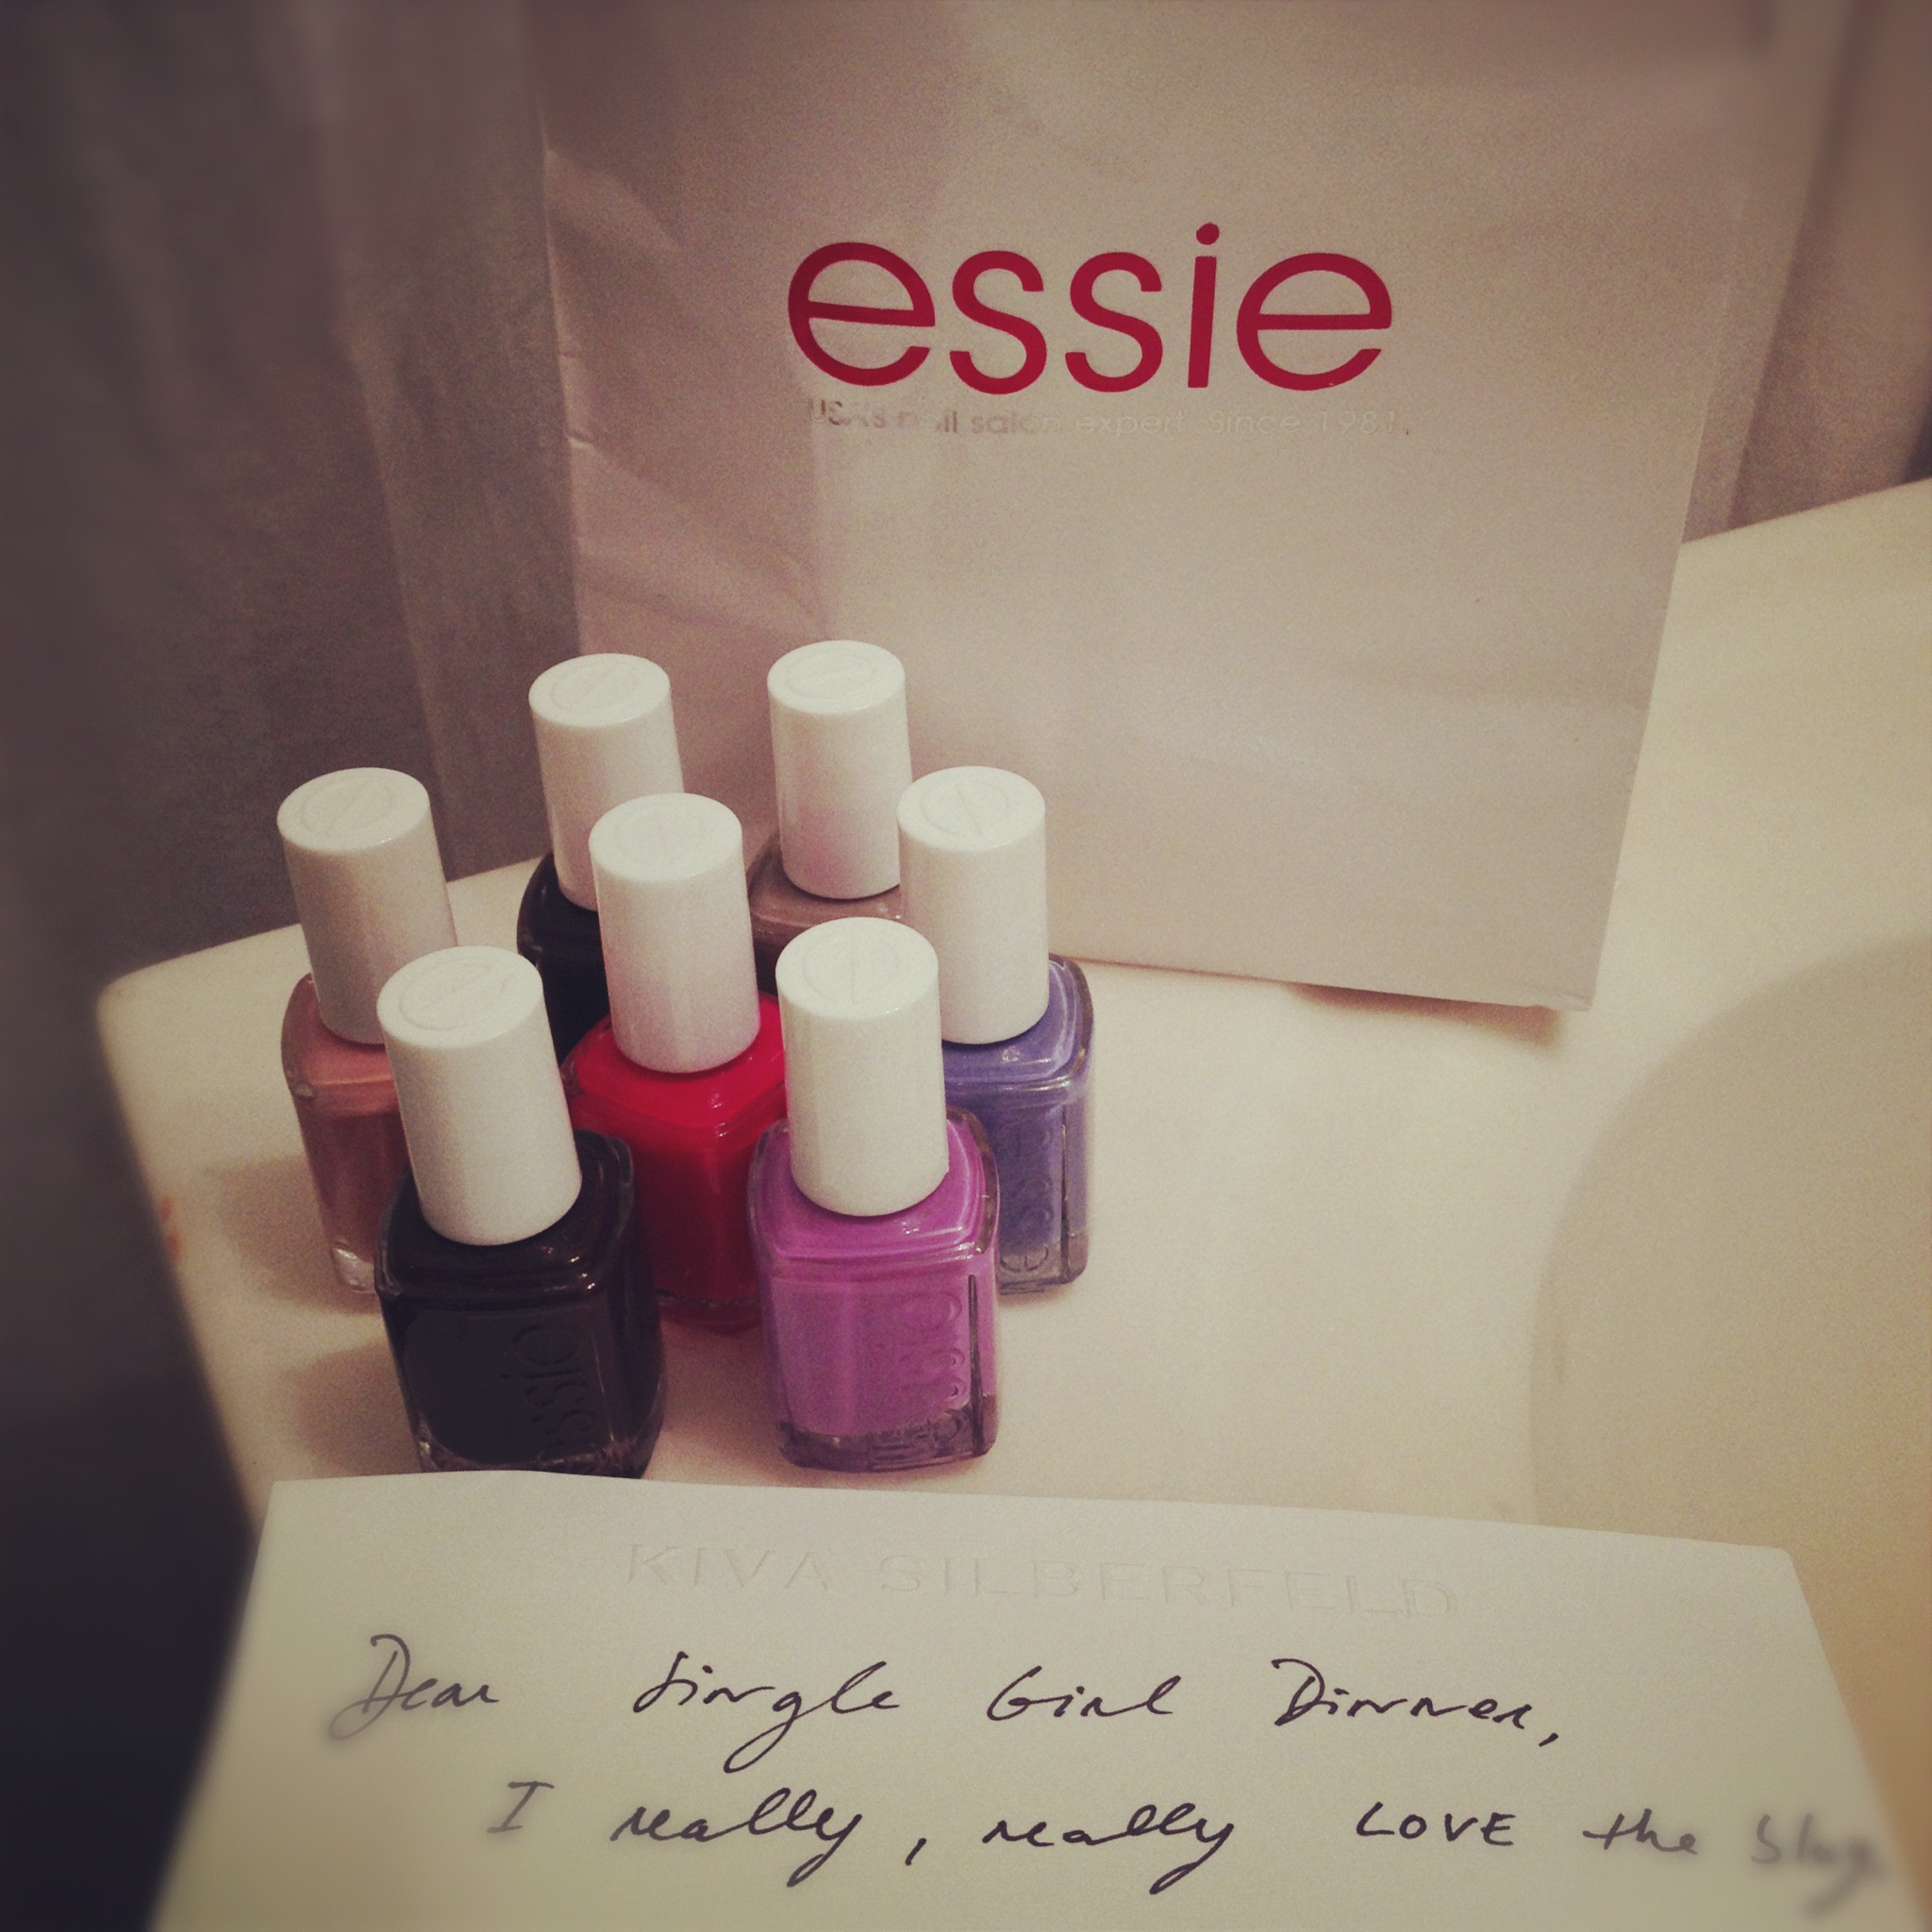 essie
USA's nail salon expert. Since 1981.
essie
essie
essie
KIVA SILBERFELD
Dear Single Girl Dinner,
I really, really LOVE the blog